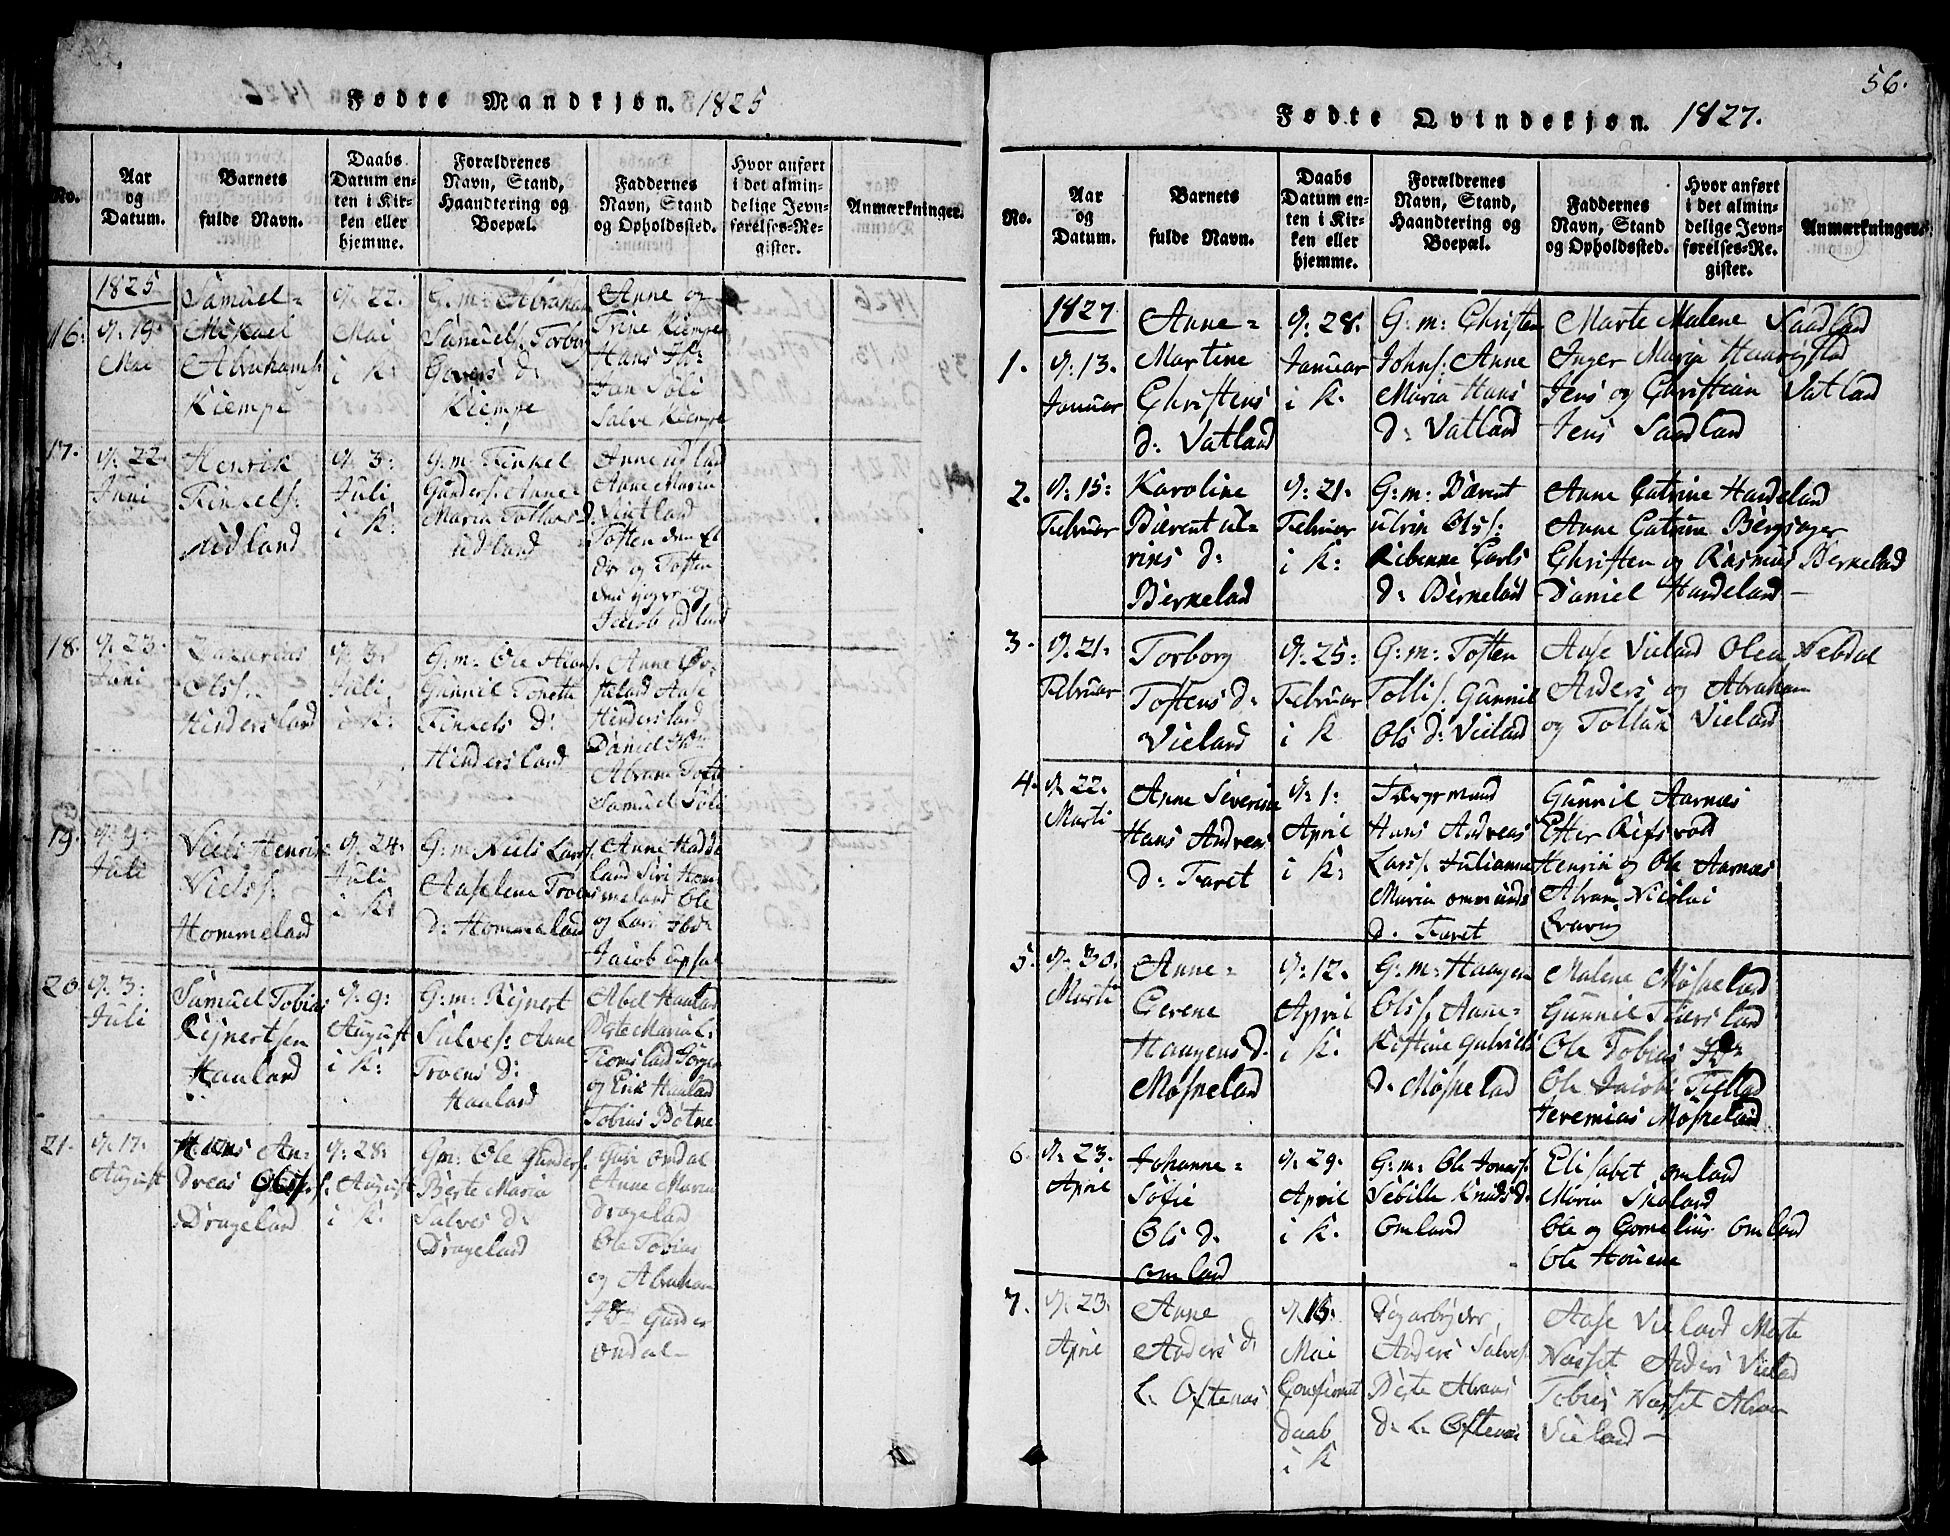 Fødte Mandkjøn. 1825
No.
Aar
og
Datum.
Barnets
fulde Navn.
Daabs
Datum en-
ten i Kir-
ken eller
hjemme.
Forældrenes
Navn, Stand,
Haandtering og
Boepæl.
Faddernes
Navn, Stand
og Opholdssted.
Hvor anført
i det almin-
delige Jevn-
førelses-Re-
gister.
Anmærkninger.
1825
16.
d. 19.
Mai
Samuel
Mikael
Abrahams.
Kiempe
d. 22.
Mai
i K:
G: m: Abraham
Samuels. Torbor
d:
Kiempe
Anne og
Trine Kiempe
Hans
Jan Soli
Salve Kiempe
17.
d. 22.
Juni
Henrik
Tinkels.
Udland
d. 3.
Juli
i K:
G: m: Tinkel
Gunders. Anne
Maria d:
Udland
Anne Udland
Anne Maria
Vatland
Tosten den el
dr og Tosten
den yngr og
Jacob Udland
18.
d. 23.
Juni
Zakarias
Ols.
Hindersland
d. 3.
Juli
i K:
G: m: Ole Hans.
Gunnil
Tinkels D:
Hindersland
Anne
Aase
Hindersland
Daniel Ibdm
Samuel Soli
19.
d. 9.
Juli
Niels Henrik
Niels.
Hommeland
d. 24.
Juli
i K:
G: m: Niels Lars.
Aaselene Troens
d: Hommeland
Anne Hadde
land Siri Hom
meland Ole
og Lars Ibd
Jacob
20.
d. 3.
Juli
Samuel Tobias
Rejnertsen
Hauland
d. 9.
August
i K:
G: m: Rejnert
Salves. Anne
Troens D:
Hauland
Abel Hauland
Berte Maria
og Erik Hauland
Tobias Botne
21.
d. 17.
August
Hans An-
dreas Ols.
Drageland
d. 28.
August
i K:
Gm: Ole Gunders.
Berte Maria
Salves D:
Drageland
Guri Omdal
Anne Maria
Drageland
Ole Tobias
og Abraham
Ibdm Gunder
Omdal
56.
Fødte Qvindekjøn. 1827.
No.
Aar
og
Datum.
Barnets
fulde Navn.
Daabs
Datum en-
ten i Kir-
ken eller
hjemme.
Forældrenes
Navn, Stand,
Haandtering og
Boepæl.
Faddernes
Navn, Stand
og Opholdssted.
Hvor anført
i det almin-
delige Jevn-
førelses-Re-
gister.
Anmærkninger.
1827
1.
d. 13.
Januar
Anne-
Martine
Christens
D: Vatland
d. 28.
Januar
i K.
G: m: Christen
Johns. Anne
Maria Hans
D: Vatland
Marte Malene Saadland
Inger Maria
Jens og Christian Vatland
Jens Saadland
2.
d. 15.
Februar
Karoline
Bærent Ul-
riks D:
Berkeland
d. 21.
Februar
i K:
G: m: Bærent
Ulrik Ols.
Carls
D: Berkeland
Anne Catrine Hardeland
Anne Catrine
Christen og Rasmus Berkeland
Daniel Hardeland
3.
d. 21.
Februar
Torborg
Tostens D:
Vieland
d. 25.
Februar
i K
G: m: Tosten
Tollis. Gunnil
Ols D: Vieland
Aase Vieland Olea
Anders og Abraham
og Tollak Vieland
4.
d. 22.
Marti
Anne Severine
Hans Andreas
D: Faret
d. 1.
April
i K:
Hans Andreas
Lars. Julianne
Maria
D. Faret
Gunnil Aarnæs
Ester
Henrik og Ole Aarnæs
Abram Nicolai
5.
d. 30.
Marti
Anne-
Gerene
Haagens D.
Moseland
d. 12.
April
i K.
G: m: Haagen
Ols. Anne-
Kistine Gabriels
D. Moseland
Malene Moseland
Gunnil
Ole Tobias Ibdm
Ole Jacob
Jeremias Moseland
6.
d. 23.
April
Johanne-
Sofie
Ols D.
Omland
d. 29.
April
i K.
G: m: Ole Jonas.
Sebille Knuds D.
Omland
Elisabet Omland
Maria
Ole og Cornelius Omland
Ole
7.
d. 23.
April
Anne
Anders D.
L. Oftenæs
d. 13.
Mai
Confirmert
daab
i K
Anders Salves.
Berte
D. L. Oftenæs
Aase Vieland Marte
Nasset Anders Vieland
Tobias Nasset
Vieland